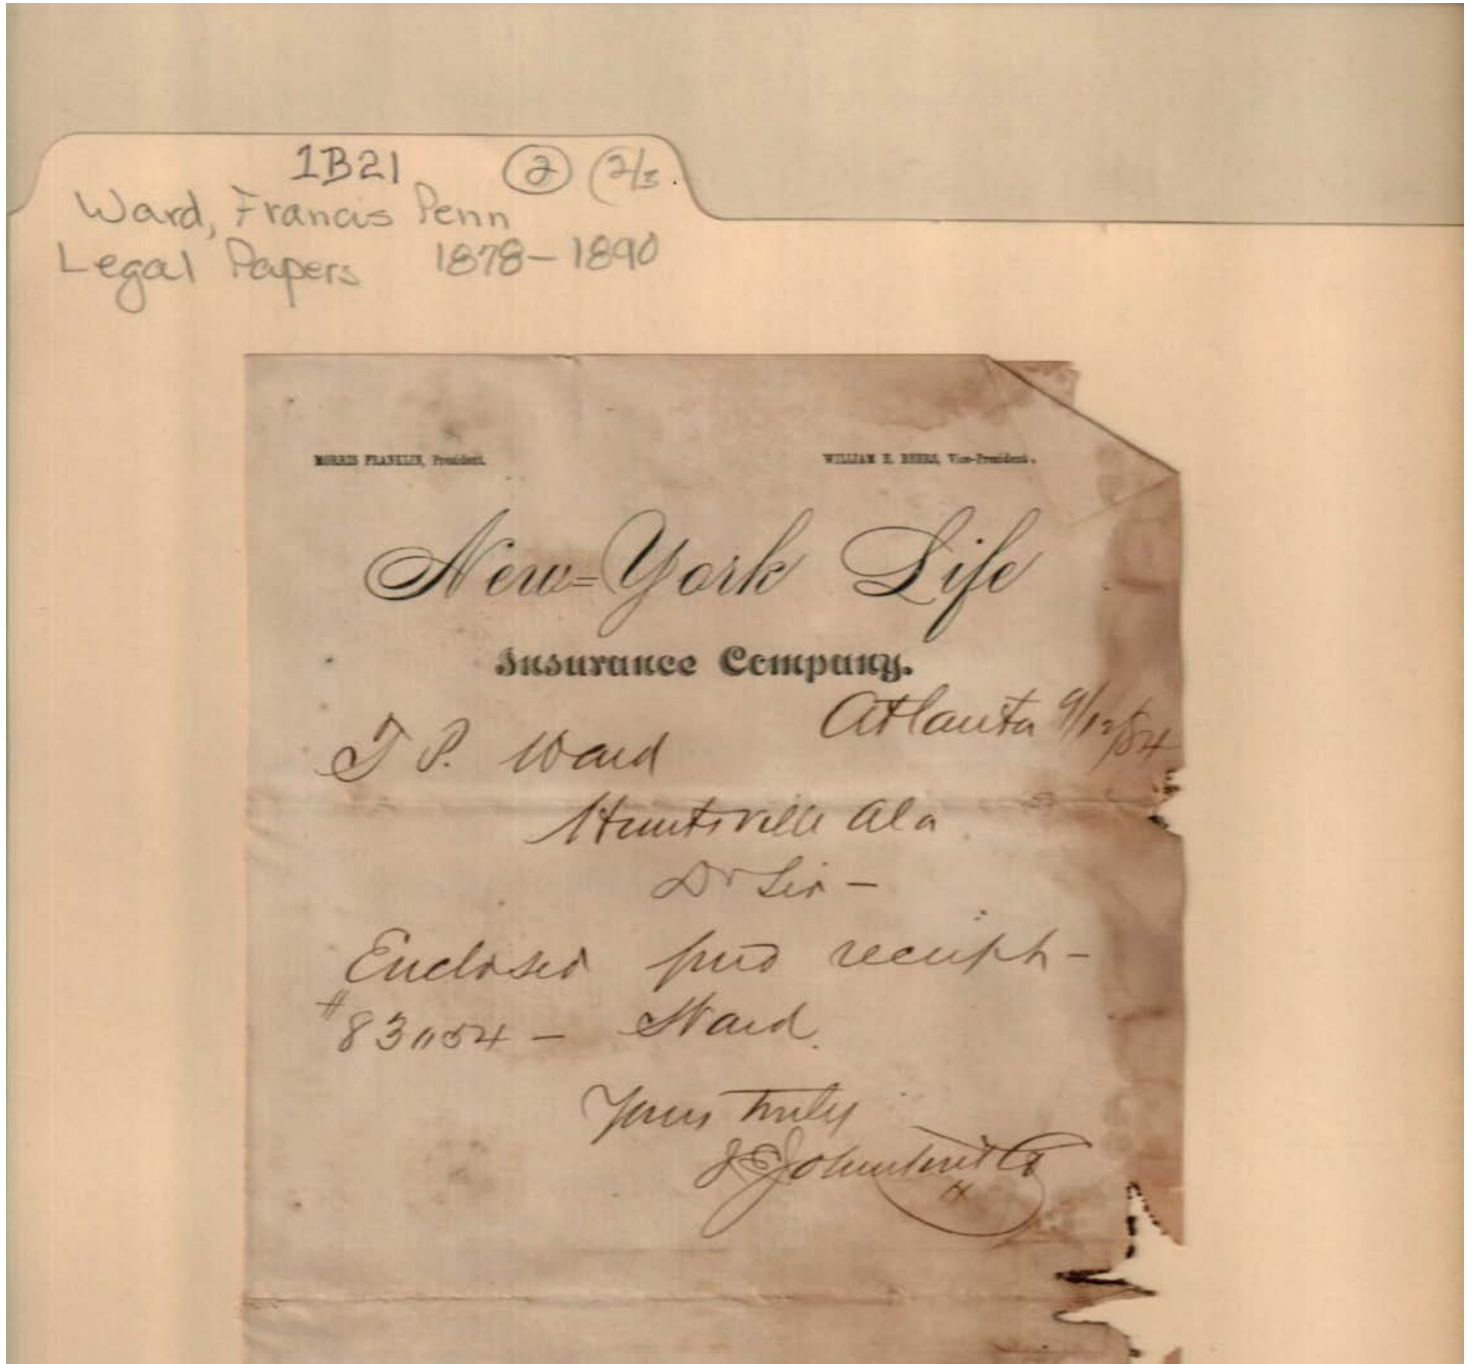 1B21 2 (2/3
Ward, Francis Penn
Legal Papers 1878-1890
MORRIS FRANKLIN, President. WILLIAM H. BEERS, Vice-President.
New=York Life
Insurance Company.
Atlanta 9/12/84
F P. Ward
Huntsville Ala
Dr Sir -
Enclosed find receipt -
# - Ward.
Yours truly